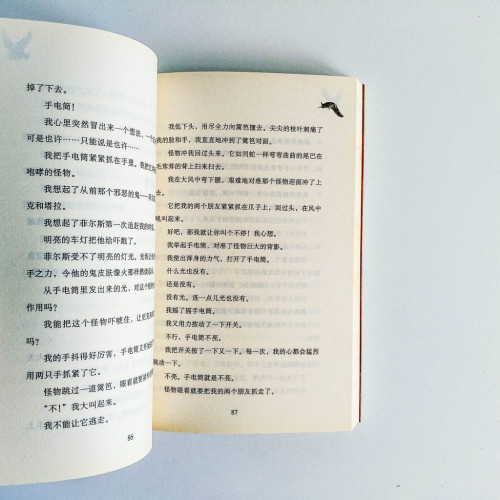 掉了下去。
手电筒!
我心里突然冒出来一个想法,一个
可是也许……只能说是也许……
我把手电筒紧紧抓在手里,我把它
咆哮的怪物。
我想起了从前那个邪恶的鬼——菲
克和塔拉。
我想起了菲尔斯第一次追赶我的
明亮的车灯把他给吓跑了。
菲尔斯受不了明亮的灯光。光
手之力,令他的鬼皮肤像火那样燃
从手电筒里发出来的光,对这个怪物
作用吗?
我能把这个怪物吓唬住,让
吗?
我的手抖得好厉害,手电筒又
用两只手抓紧了它。
怪物跳过一道篱笆,眼看就要
“不!”我大叫起来。
我不能让它逃走。
86
我低下头,用尽全力向篱笆撞去。尖尖的枝叶刺痛了
我的脸和手,我直直地冲到了篱笆对面。
怪物冲我回过头来。它如同蛇一样弯弯曲曲的尾巴在
毛茸茸的背上扫来扫去。
我在大风中弯下腰,艰难地对准那个怪物迎面冲了上
去。
它把我的两个朋友紧紧抓在爪子上,回过头,在风中
吼叫起来。
好吧,那我就让你叫个不停!我心想。
我举起手电筒,对准了怪物巨大的背影。
我使出浑身的力气,打开了手电筒。
什么光也没有。
还是没有。
没有光。连一点儿光也没有。
我摇了摇手电筒。
我又用力按动了一下开关。
不行,手电筒不亮。
我把开关按了一下又一下。每一次,我的心都会猛烈
跳动一下。
不亮。手电筒就是不亮。
怪物眼看就要把我的两个朋友抓走了。
87